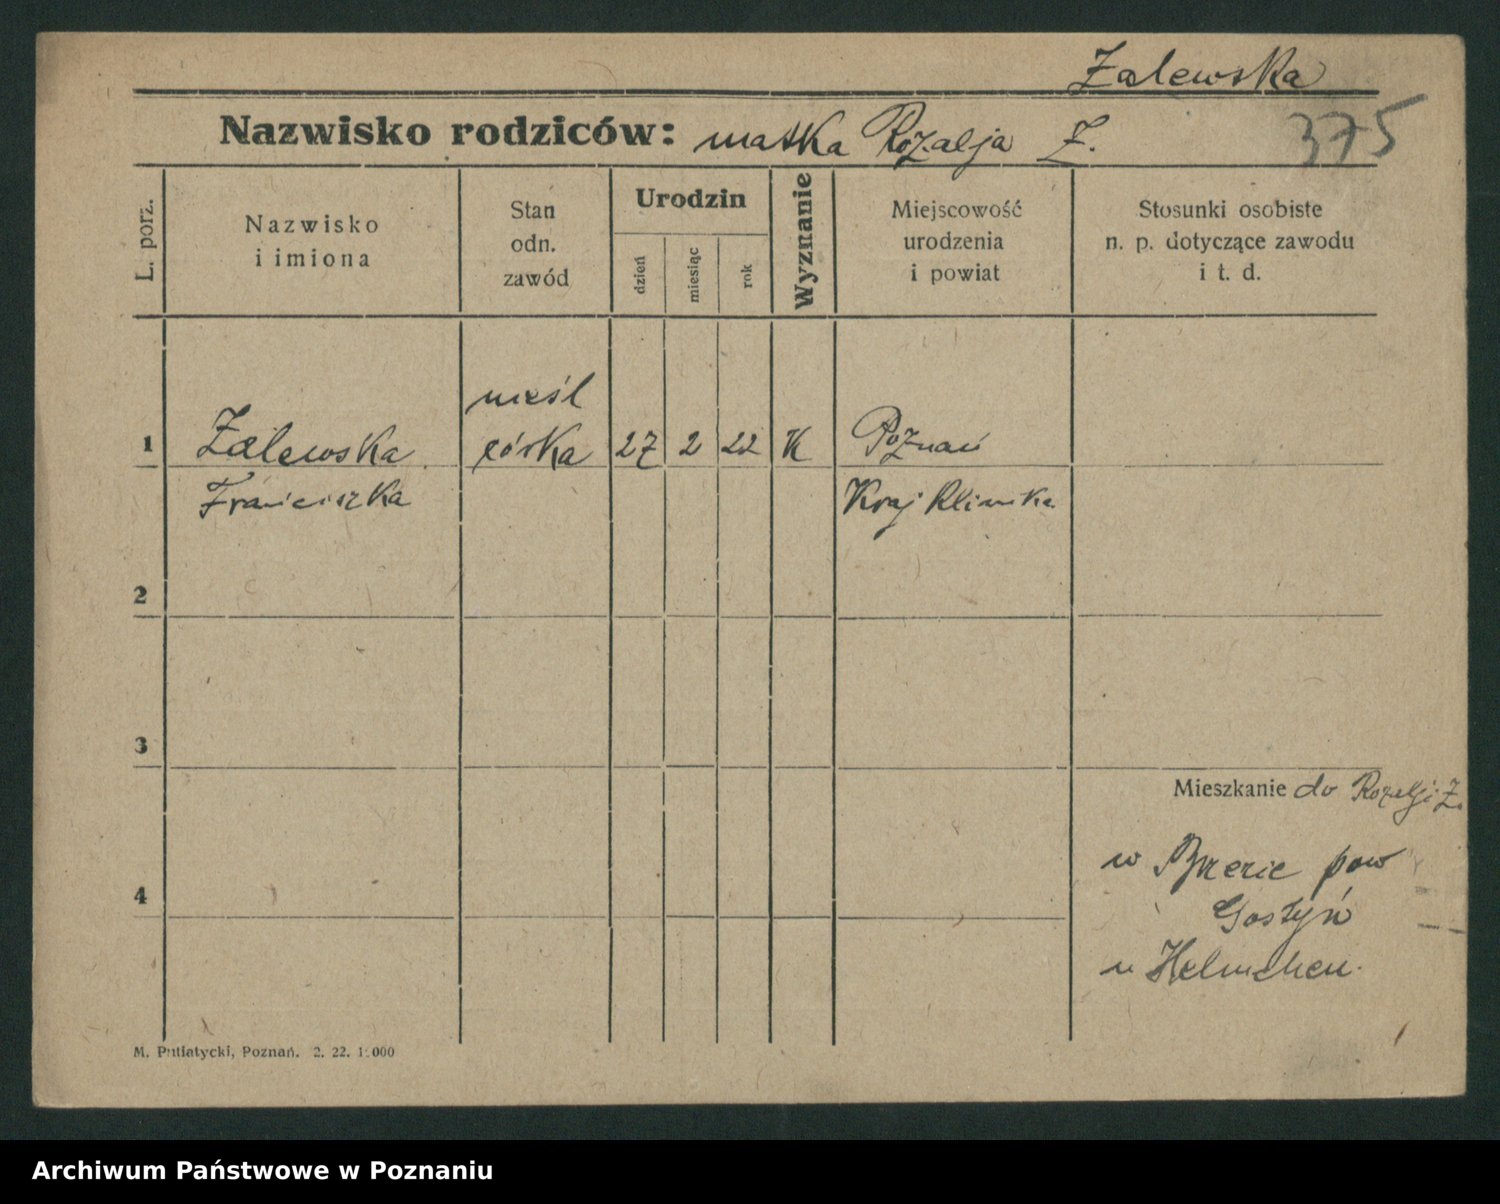 Zalewska
Nazwisko rodziców: matka Rozalja Z.
375
L. porz.
Nazwisko
i imiona
Stan
odn.
zawód
Urodzin
dzień
miesiąc
rok
Wyznanie
Miejscowość
urodzenia
i powiat
Stosunki osobiste
n. p. dotyczące zawodu
i t. d.
nieśl
1 Zalewska córka 27 2 22 K Poznań
Franciszka Kraj Klinika
2
3
Mieszkanie do Rozalji Z.
w pow
4
Gostyń
u Helmchen.
M. Putiatycki, Poznań. 2. 22. 1.000
Archiwum Państwowe w Poznaniu